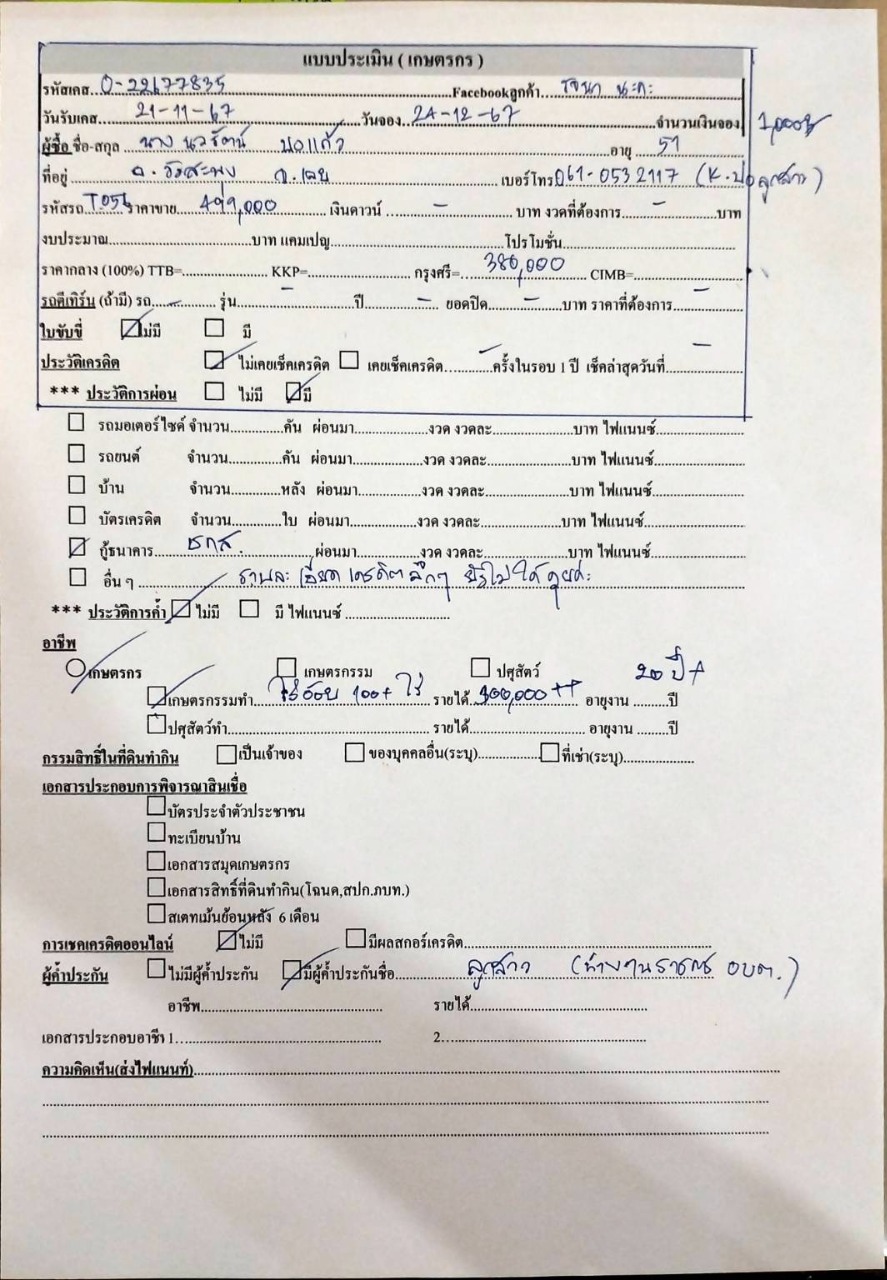 แบบประเมิน ( เกษตรกร )
รหัสเคส 0-22677835 Facebookลูกค้า รจนา นะคะ
วันรับเคส 21-11-67 วันจอง 24-12-67 จำนวนเงินจอง 1,000฿
ผู้ซื้อ ชื่อ-สกุล นาง นวรัตน์ บ่อแก้ว อายุ 51
ที่อยู่ อ. วังสะพุง จ. เลย เบอร์โทร 061-0532117 (K. ปอ ลูกสาว)
รหัสรถ T056 ราคาขาย 499,000 เงินดาวน์ - บาท งวดที่ต้องการ - บาท
งบประมาณ บาท แคมเปญ โปรโมชั่น
ราคากลาง (100%) TTB= KKP= กรุงศรี= 380,000 CIMB=
รถตีเทิร์น (ถ้ามี) รถ - รุ่น - ปี - ยอดปิด - บาท ราคาที่ต้องการ -
ใบขับขี่ ไม่มี มี
ประวัติเครดิต ไม่เคยเช็คเครดิต เคยเช็คเครดิต - ครั้งในรอบ 1 ปี เช็คล่าสุดวันที่ -
*** ประวัติการผ่อน ไม่มี มี
รถมอเตอร์ไซด์ จำนวน คัน ผ่อนมา งวด งวดละ บาท ไฟแนนซ์
รถยนต์ จำนวน คัน ผ่อนมา งวด งวดละ บาท ไฟแนนซ์
บ้าน จำนวน หลัง ผ่อนมา งวด งวดละ บาท ไฟแนนซ์
บัตรเครดิต จำนวน ใบ ผ่อนมา งวด งวดละ บาท ไฟแนนซ์
กู้ธนาคาร ธกส. ผ่อนมา งวด งวดละ บาท ไฟแนนซ์
อื่น ๆ รายละเอียด เครดิต ลึกๆ ยังไม่ได้คุยค่ะ
*** ประวัติการค้ำ ไม่มี มี ไฟแนนซ์
อาชีพ
เกษตรกร เกษตรกรรม ปศุสัตว์ 20 ปี+
เกษตรกรรมทำ ไร่อ้อย 100+ ไร่ รายได้ 300,000++ อายุงาน ปี
ปศุสัตว์ทำ รายได้ อายุงาน ปี
กรรมสิทธิ์ในที่ดินทำกิน เป็นเจ้าของ ของบุคคลอื่น(ระบุ) ที่เช่า(ระบุ)
เอกสารประกอบการพิจารณาสินเชื่อ
บัตรประจำตัวประชาชน
ทะเบียนบ้าน
เอกสารสมุดเกษตรกร
เอกสารสิทธิ์ที่ดินทำกิน(โฉนด,สปก.ภบท.)
สเตทเม้นย้อนหลัง 6 เดือน
การเชคเครดิตออนไลน์ ไม่มี มีผลสกอร์เครดิต
ผู้ค้ำประกัน ไม่มีผู้ค้ำประกัน มีผู้ค้ำประกันชื่อ ลูกสาว ( อบต. )
อาชีพ รายได้
เอกสารประกอบอาชีพ 1 2
ความคิดเห็น(ส่งไฟแนนท์)